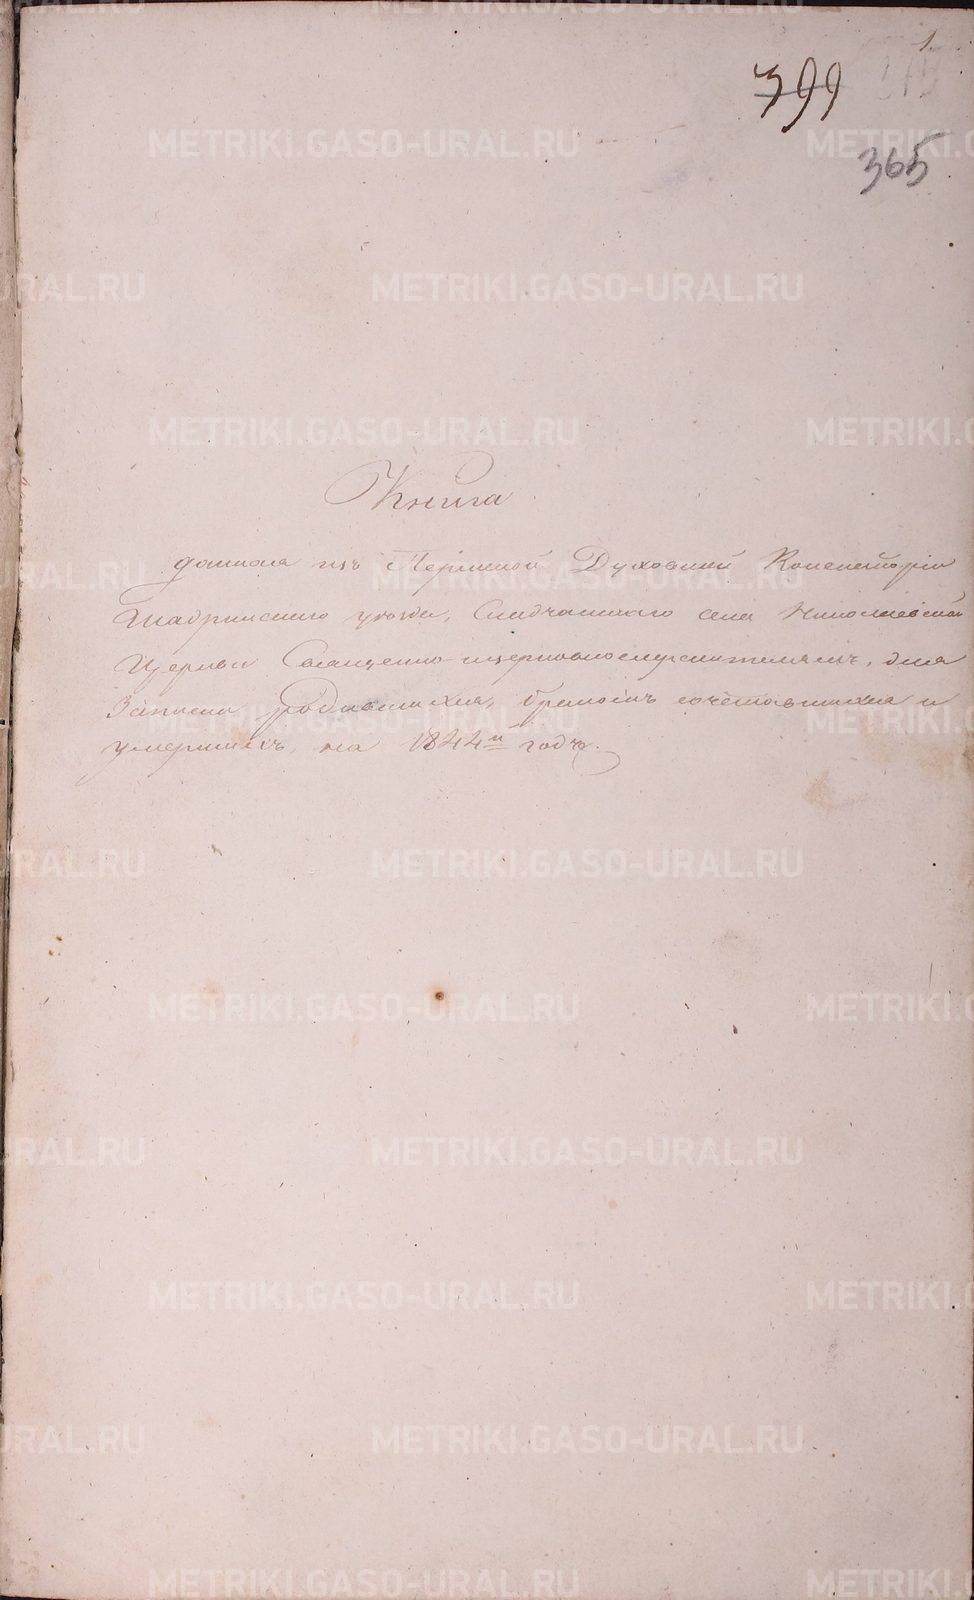 1.
399
365
Книга
данная изъ Пермской Духовной Консисторіи
Шадринскаго уѣзда, села Николаевской
Церкви Священно-церковнослужителямъ, для
Записи родившихся, бракомъ сочетавшихся и
умершихъ, на 1844й годъ.
METRIKI.GASO-URAL.RU